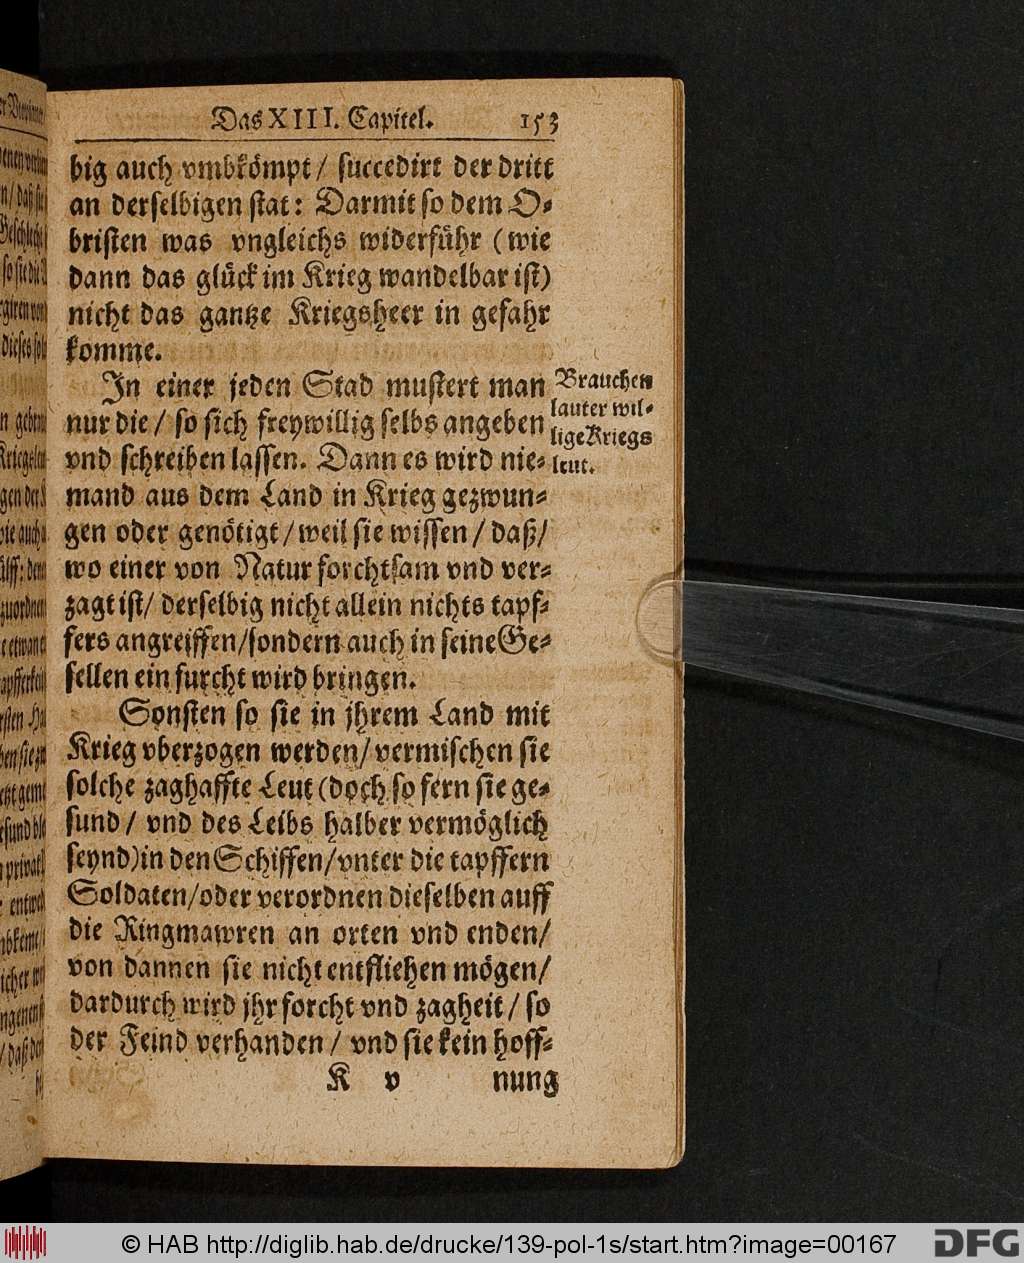 Das XIII. Capitel. 153
big auch vmbkömpt / succedirt der dritt
an derselbigen stat: Darmit so dem O-
bristen was vngleichs widerführ (wie
dann das glück im Krieg wandelbar ist)
nicht das gantze Kriegsheer in gefahr
komme.
In einer jeden Stad mustert man
nur die / so sich freywillig selbs angeben
vnd schreiben lassen. Dann es wird nie-
mand aus dem Land in Krieg gezwun-
gen oder genötigt / weil sie wissen / daß /
wo einer von Natur forchtsam vnd ver-
zagt ist / derselbig nicht allein nichts tapf-
fers angreiffen / sondern auch in seine Ge-
sellen ein furcht wird bringen.
Brauchen
lauter wil-
lige Kriegs
leut.
Sonsten so sie in jhrem Land mit
Krieg vberzogen werden / vermischen sie
solche zaghaffte Leut (doch so fern sie ge-
sund / vnd des Leibs halber vermöglich
seynd) in den Schiffen / vnter die tapffern
Soldaten / oder verordnen dieselben auff
die Ringmawren an orten vnd enden /
von dannen sie nicht entfliehen mögen /
dardurch wird jhr forcht vnd zagheit / so
der Feind verhanden / vnd sie kein hoff-
K v nung
© HAB http://diglib.hab.de/drucke/139-pol-1s/start.htm?image=00167
DFG